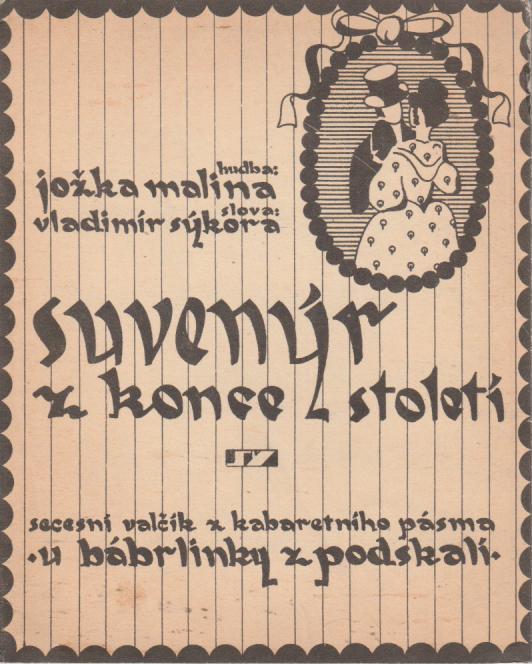 hudba:
jožka malina
slova:
vladimír sýkora
suvenýr
z konce století
SV
secesní valčík z kabaretního pásma
·u bábrlinky z podskalí·